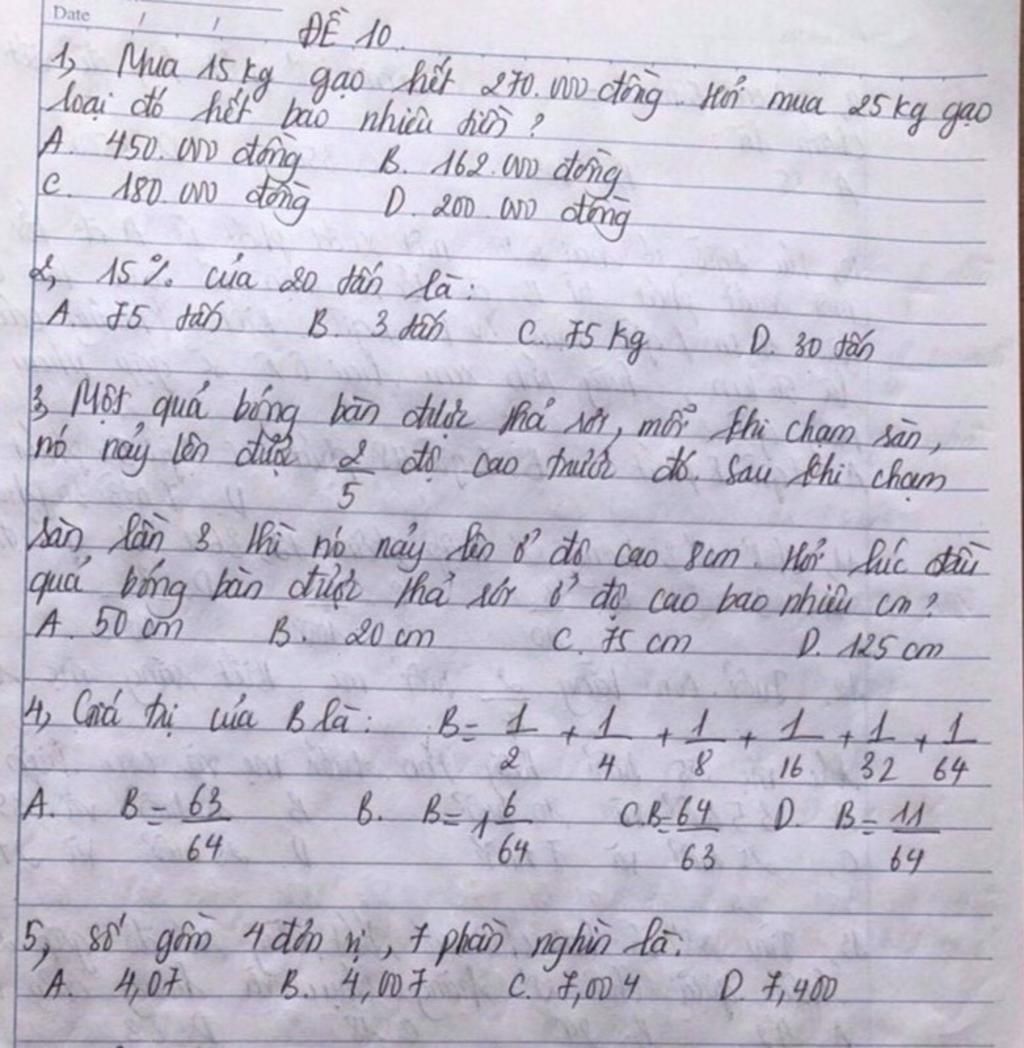 Date / /
ĐỀ 10.
1, Mua 15 kg gạo hết 270.000 đồng. Hỏi mua 25 kg gạo
loại đó hết bao nhiêu tiền ?
A. 450.000 đồng B. 162.000 đồng
C. 180.000 đồng D. 200.000 đồng
2, 15% của 20 tấn là :
A. 75 tấn B. 3 tấn C. 75 kg D. 30 tấn
3, Một quả bóng bàn được thả rơi, mỗi khi chạm sàn,
nó nảy lên được 2/5 độ cao trước đó. Sau khi chạm
sàn lần 3 thì nó nảy lên ở độ cao 8cm. Hỏi lúc đầu
quả bóng bàn được thả rơi ở độ cao bao nhiêu cm ?
A. 50 cm B. 20 cm C. 75 cm D. 125 cm
4, Giá trị của B là : B = 1/2 + 1/4 + 1/8 + 1/16 + 1/32 + 1/64
A. B = 63/64 B. B = 1 6/64 C. B = 64/63 D. B = 11/64
5, Số gồm 4 đơn vị, 7 phần nghìn là :
A. 4,07 B. 4,007 C. 7,004 D. 7,400